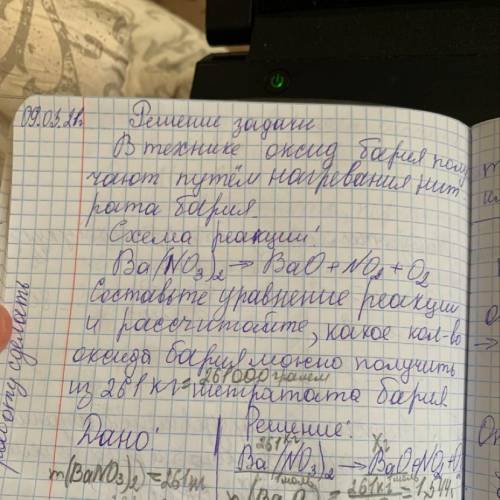 09.03.21г.
Решение задачи
В технике оксид бария полу
чают путём нагревания нит
рата бария.
Схема реакции:
Ba(NO3)2 → BaO + NO2 + O2
Составьте уравнение реакции
и рассчитайте, какое кол-во
оксида бария можно получить
из 261 кг = 261000 грамм нитратата бария.
Дано: Решение:
261кг Xг
m(BaNO3)2 = 261кг Ba(NO3)2 → BaO + NO2 + O2
1 моль
работу сделать